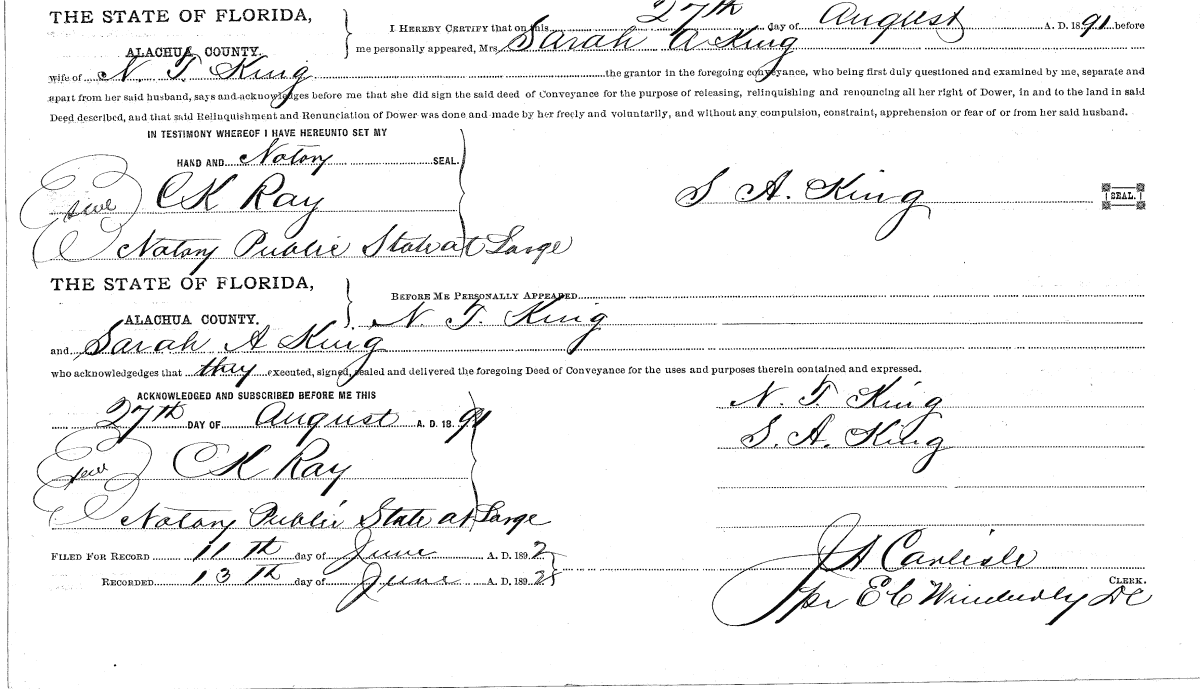 THE STATE OF FLORIDA,
ALACHUA COUNTY.
I HEREBY CERTIFY that on this 27th day of August A. D. 1891 before
me personally appeared, Mrs. Sarah A King
wife of N. T. King the grantor in the foregoing conveyance, who being first duly questioned and examined by me, separate and
apart from her said husband, says and acknowledges before me that she did sign the said deed of Conveyance for the purpose of releasing, relinquishing and renouncing all her right of Dower, in and to the land in said
Deed described, and that said Relinquishment and Renunciation of Dower was done and made by her freely and voluntarily, and without any compulsion, constraint, apprehension or fear of or from her said husband.
IN TESTIMONY WHEREOF I HAVE HEREUNTO SET MY
HAND AND Notory SEAL.
seal CK Ray
S A. King SEAL.
Notory Public State at Large
THE STATE OF FLORIDA,
ALACHUA COUNTY.
BEFORE ME PERSONALLY APPEARED
N. T. King
and Sarah A King
who acknowledgedges that they executed, signed, sealed and delivered the foregoing Deed of Conveyance for the uses and purposes therein contained and expressed.
ACKNOWLEDGED AND SUBSCRIBED BEFORE ME THIS
27th DAY OF August A. D. 18 91
N. T. King
S. A. King
seal CK Ray
Notory Public State at Large
FILED FOR RECORD 11th day of June A. D. 1892
RECORDED 13th day of June A. D. 1892
J A Carlisle
CLERK.
per E C Wimberly DC